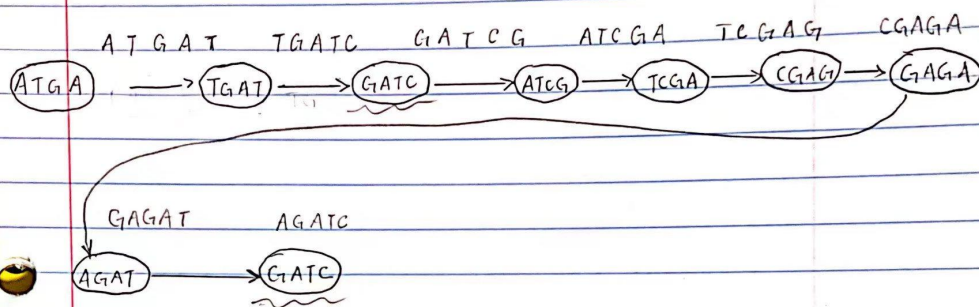 ATGAT TGATC GATCG ATCGA TCGAG CGAGA
ATGA TGAT GATC ATCG TCGA CGAG GAGA
GAGAT AGATC
AGAT GATC